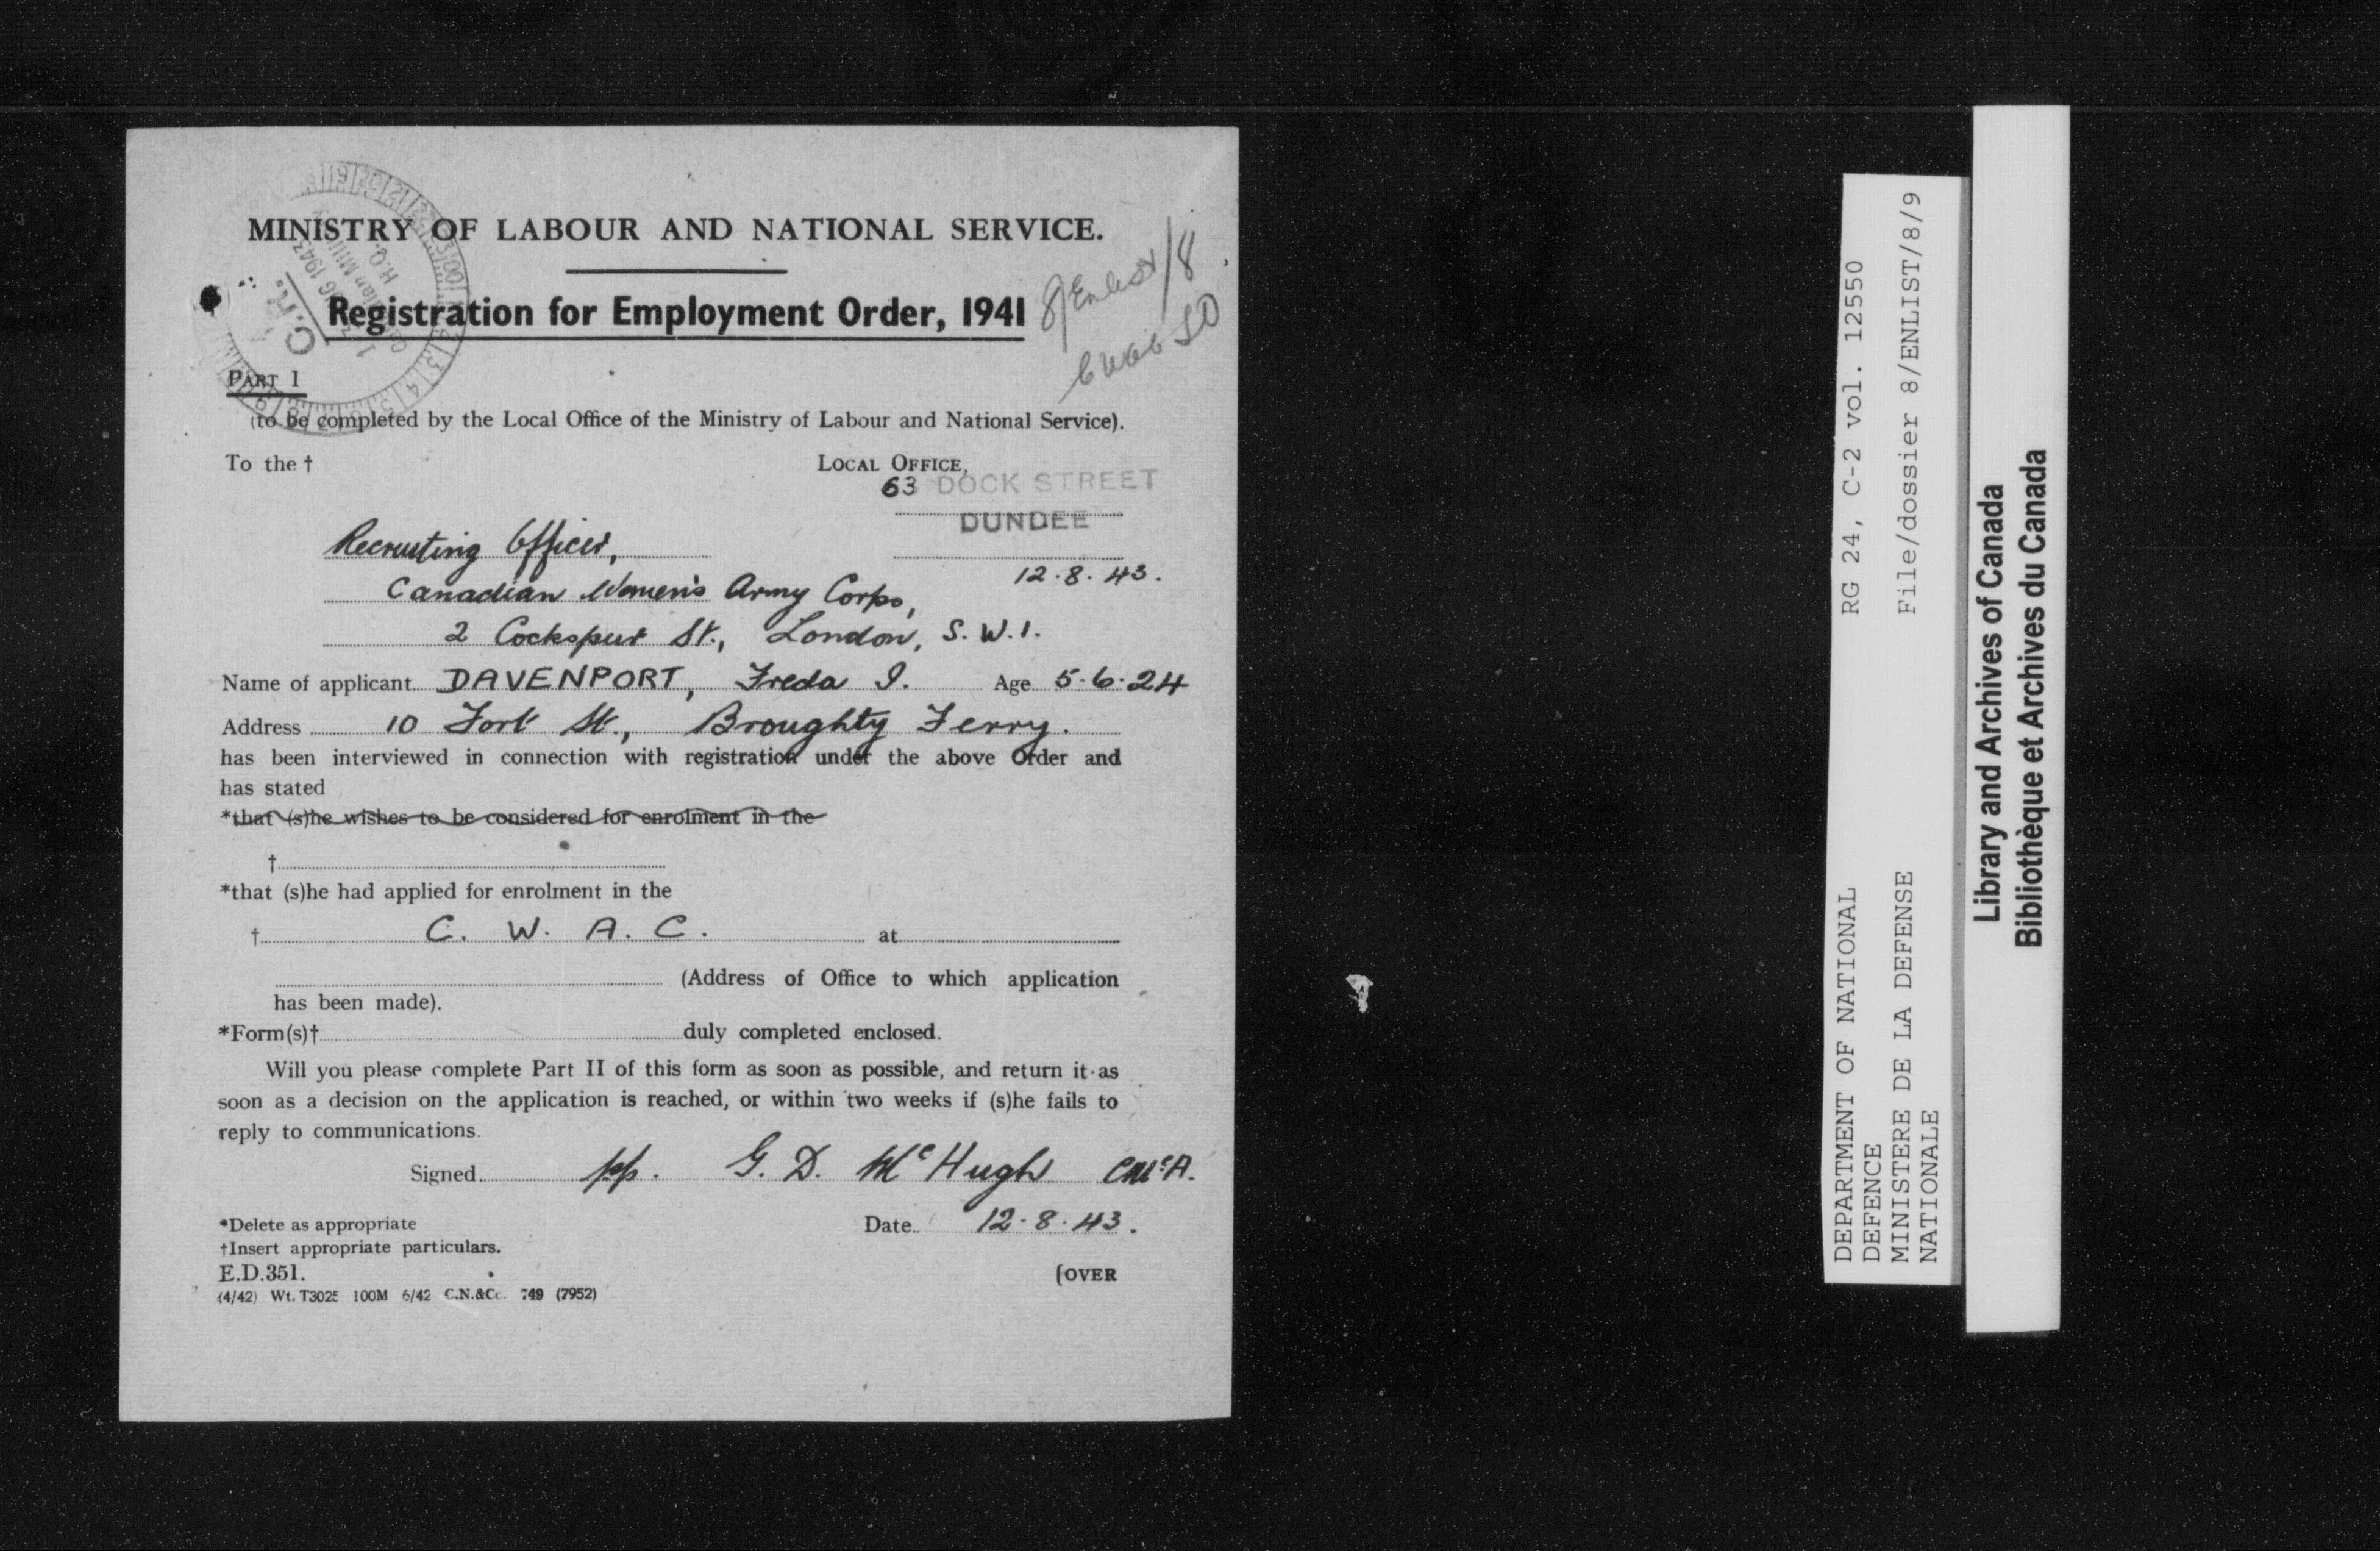 MINISTRY OF LABOUR AND NATIONAL SERVICE.
Registration for Employment Order, 1941
8/Enlist/8
C.R.
1943
H.Q.
PART I
(to be completed by the Local Office of the Ministry of Labour and National Service).
To the †
LOCAL OFFICE,
63 DOCK STREET
DUNDEE
Recruiting Officer,
12.8.43.
Canadian Women's Army Corps,
2 Cockspur St., London, S.W.1.
Name of applicant DAVENPORT, Freda I. Age 5.6.24
Address 10 Fort St., Broughty Ferry.
has been interviewed in connection with registration under the above Order and
has stated
*that (s)he wishes to be considered for enrolment in the
†
*that (s)he had applied for enrolment in the
† C. W. A. C. at
(Address of Office to which application
has been made).
*Form(s)† duly completed enclosed.
Will you please complete Part II of this form as soon as possible, and return it as
soon as a decision on the application is reached, or within two weeks if (s)he fails to
reply to communications.
Signed pp. G. D. McHugh CMcA.
*Delete as appropriate
Date 12.8.43.
†Insert appropriate particulars.
E.D.351.
(OVER
(4/42) Wt. T3025 100M 6/42 C.N.&Co. 749 (7952)
RG 24, C-2 vol. 12550
File/dossier 8/ENLIST/8/9
DEPARTMENT OF NATIONAL
DEFENCE
MINISTERE DE LA DEFENSE
NATIONALE
Library and Archives of Canada
Bibliothèque et Archives du Canada